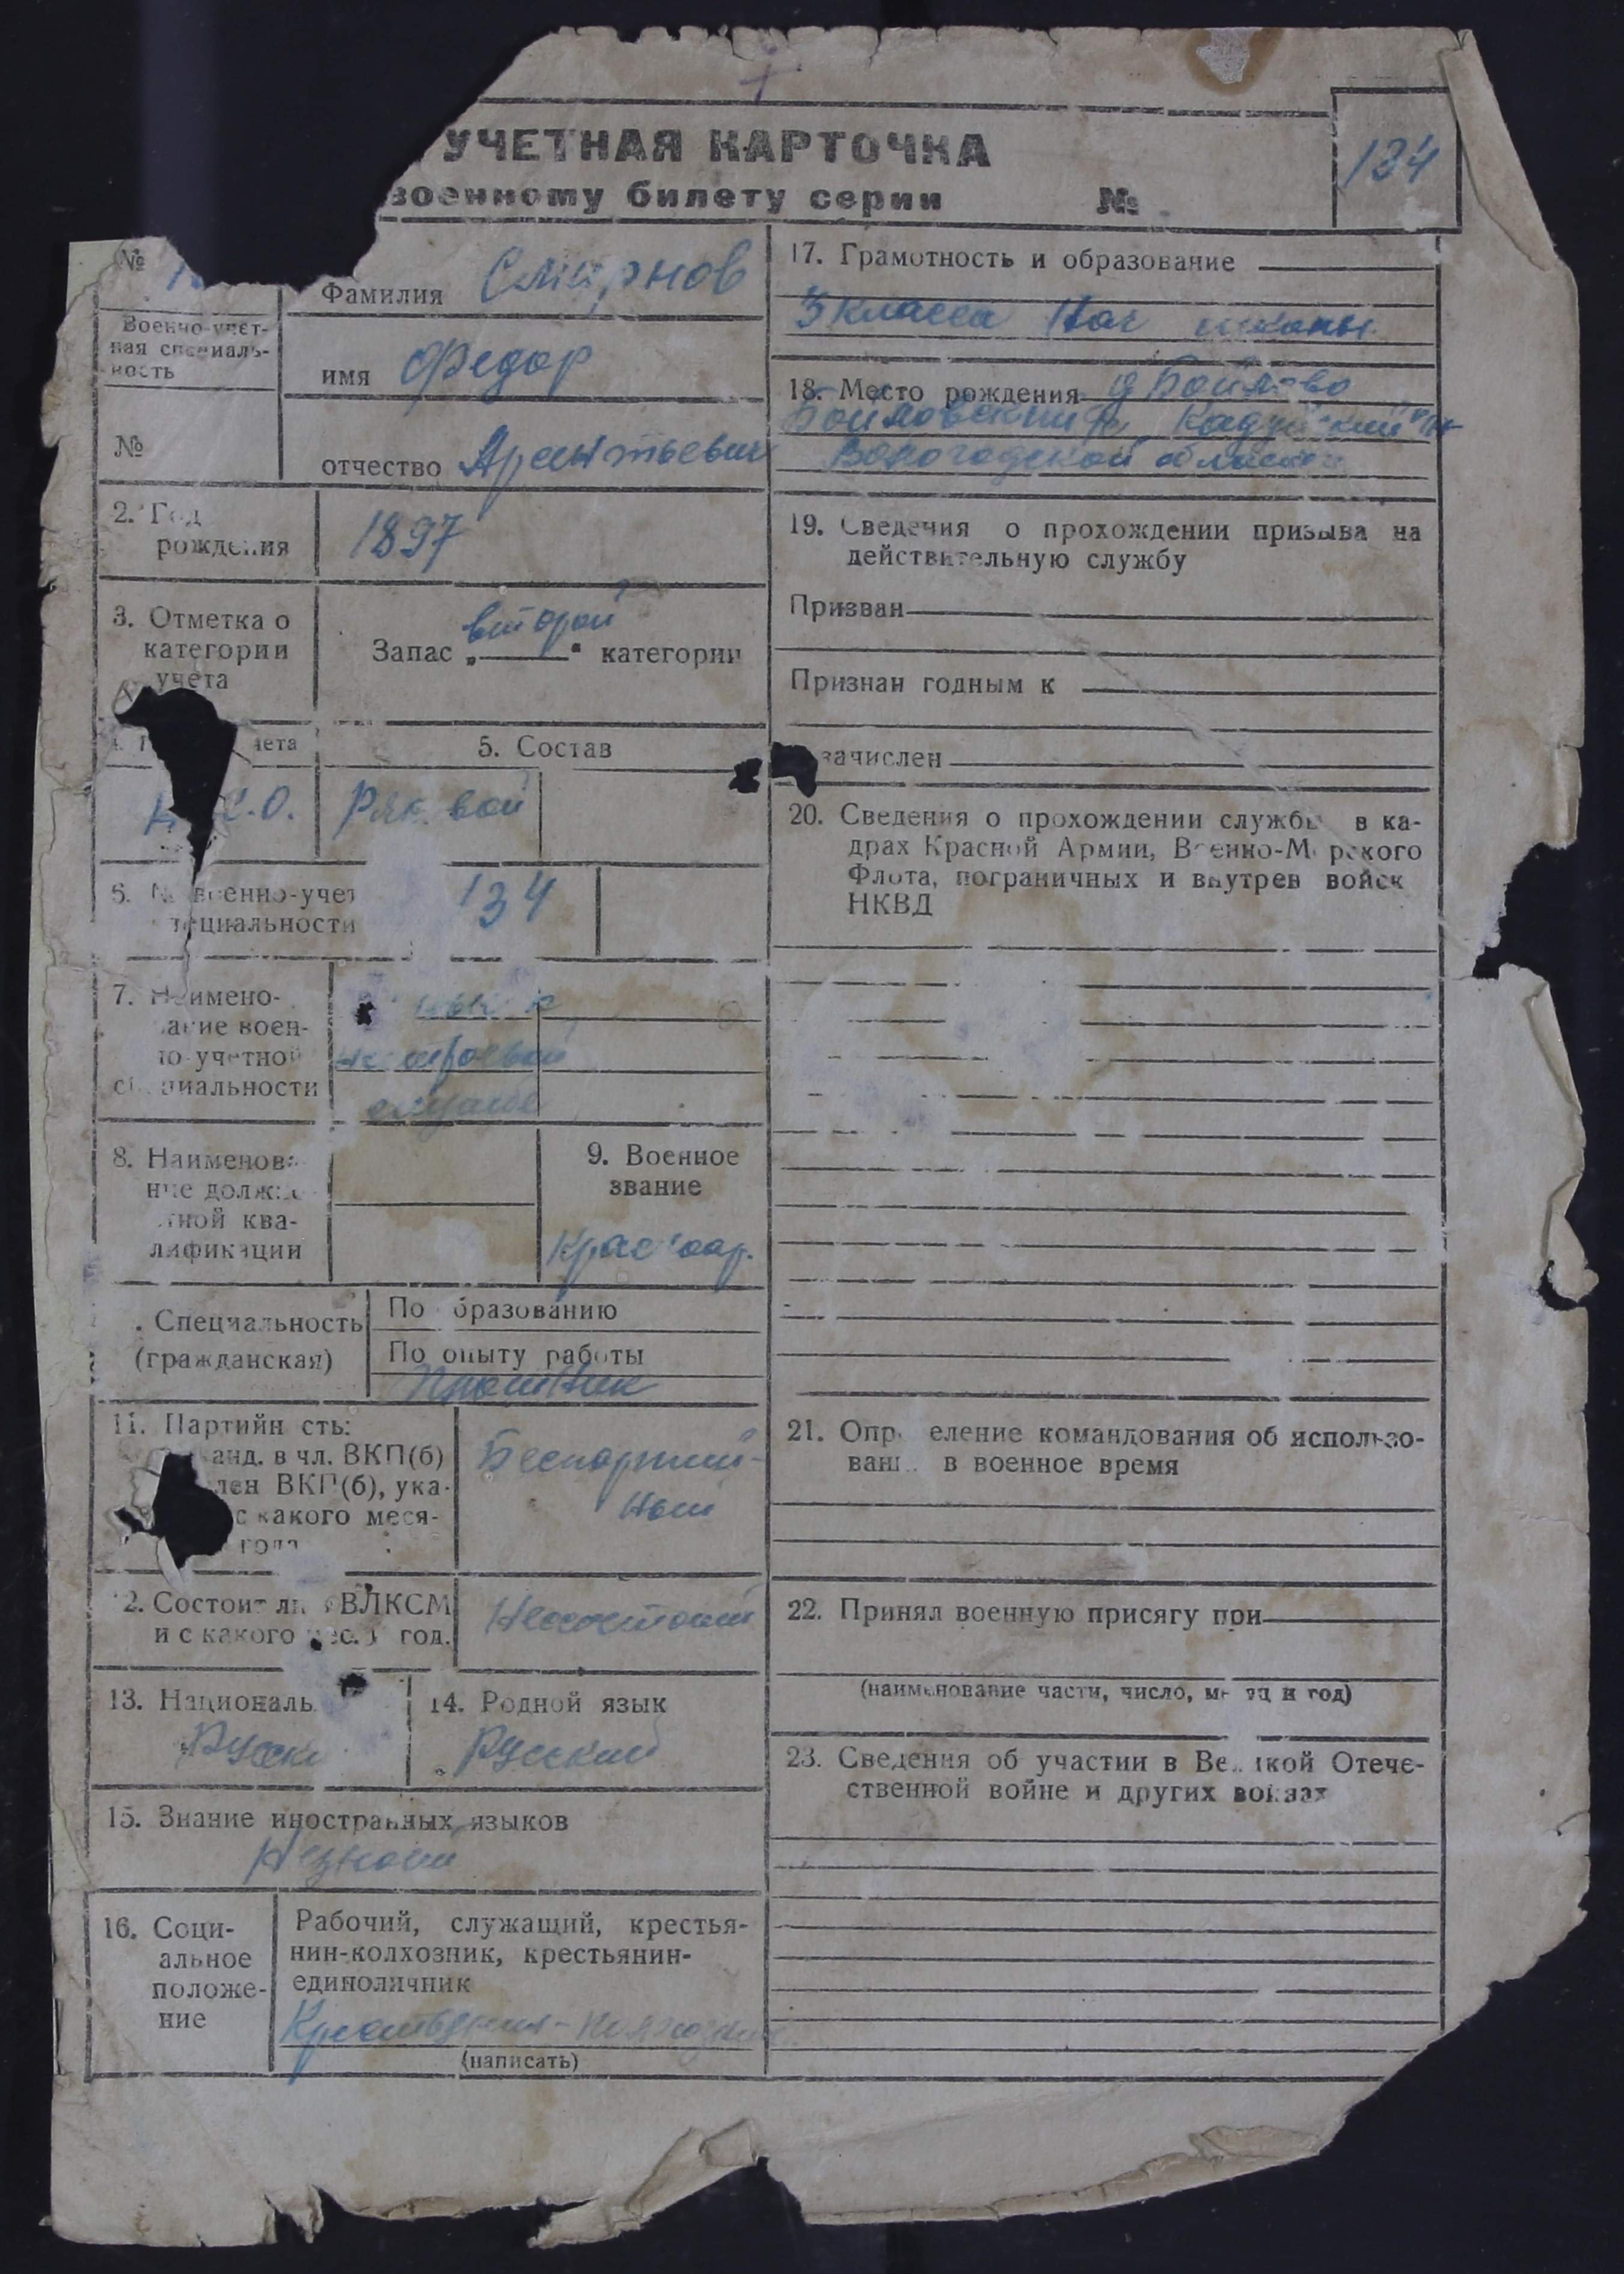 УЧЕТНАЯ КАРТОЧКА
военному билету серии №
134
№
Фамилия Смирнов
Военно-учет-
ная специаль-
ность
имя Федор
№
отчество
2. Год
рождения
1897
3. Отметка о
категории
учета
Запас „второй“ категории
чета
5. Состав
.О.
Ряд вой
6. № военно-учет
специальности
134
7. Наимено-
вание воен-
но-учетной
специальности
строевой
службе
8. Наименова
ние должно
стной ква-
лификации
9. Военное
звание
Красноар.
. Специальность
(гражданская)
По образованию
По опыту работы
11. Партийн сть:
анд. в чл. ВКП(б)
лен ВКП(б), ука-
с какого меся-
года
Беспартий-
ный
2. Состоит ли ВЛКСМ
и с какого мес. год.
Несостоит
13. Националь
Русски
14. Родной язык
Русский
15. Знание иностранных языков
Незнает
16. Соци-
альное
положе-
ние
Рабочий, служащий, крестья-
нин-колхозник, крестьянин-
единоличник
Крестьянин-колхозник
(написать)
17. Грамотность и образование
3 класса Нач школы
18. Место рождения д
Кадуйский
Вологодской области
19. Сведения о прохождении призыва на
действительную службу
Призван
Признан годным к
зачислен
20. Сведения о прохождении службы в ка-
драх Красной Армии, Военно-Морского
Флота, пограничных и внутрен войск
НКВД
21. Опр еление командования об использо-
ван в военное время
22. Принял военную присягу при
(наименование части, число, месяц и год)
23. Сведения об участии в Ве кой Отече-
ственной войне и других войнах